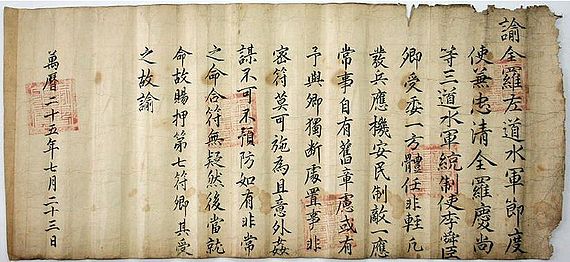 諭全羅左道水軍節度
使兼忠清全羅慶尚
等三道水軍統制使李舜臣
卿受委一方體任非輕凡
發兵應機安民制敵一應
常事自有舊章慮或有
予與卿獨斷處置事非
密符莫可施為且意外姦
謀不可不預防如有非常
之命合符無疑然後當就
命故賜押第七符卿其受
之故諭
萬曆二十五年七月二十三日